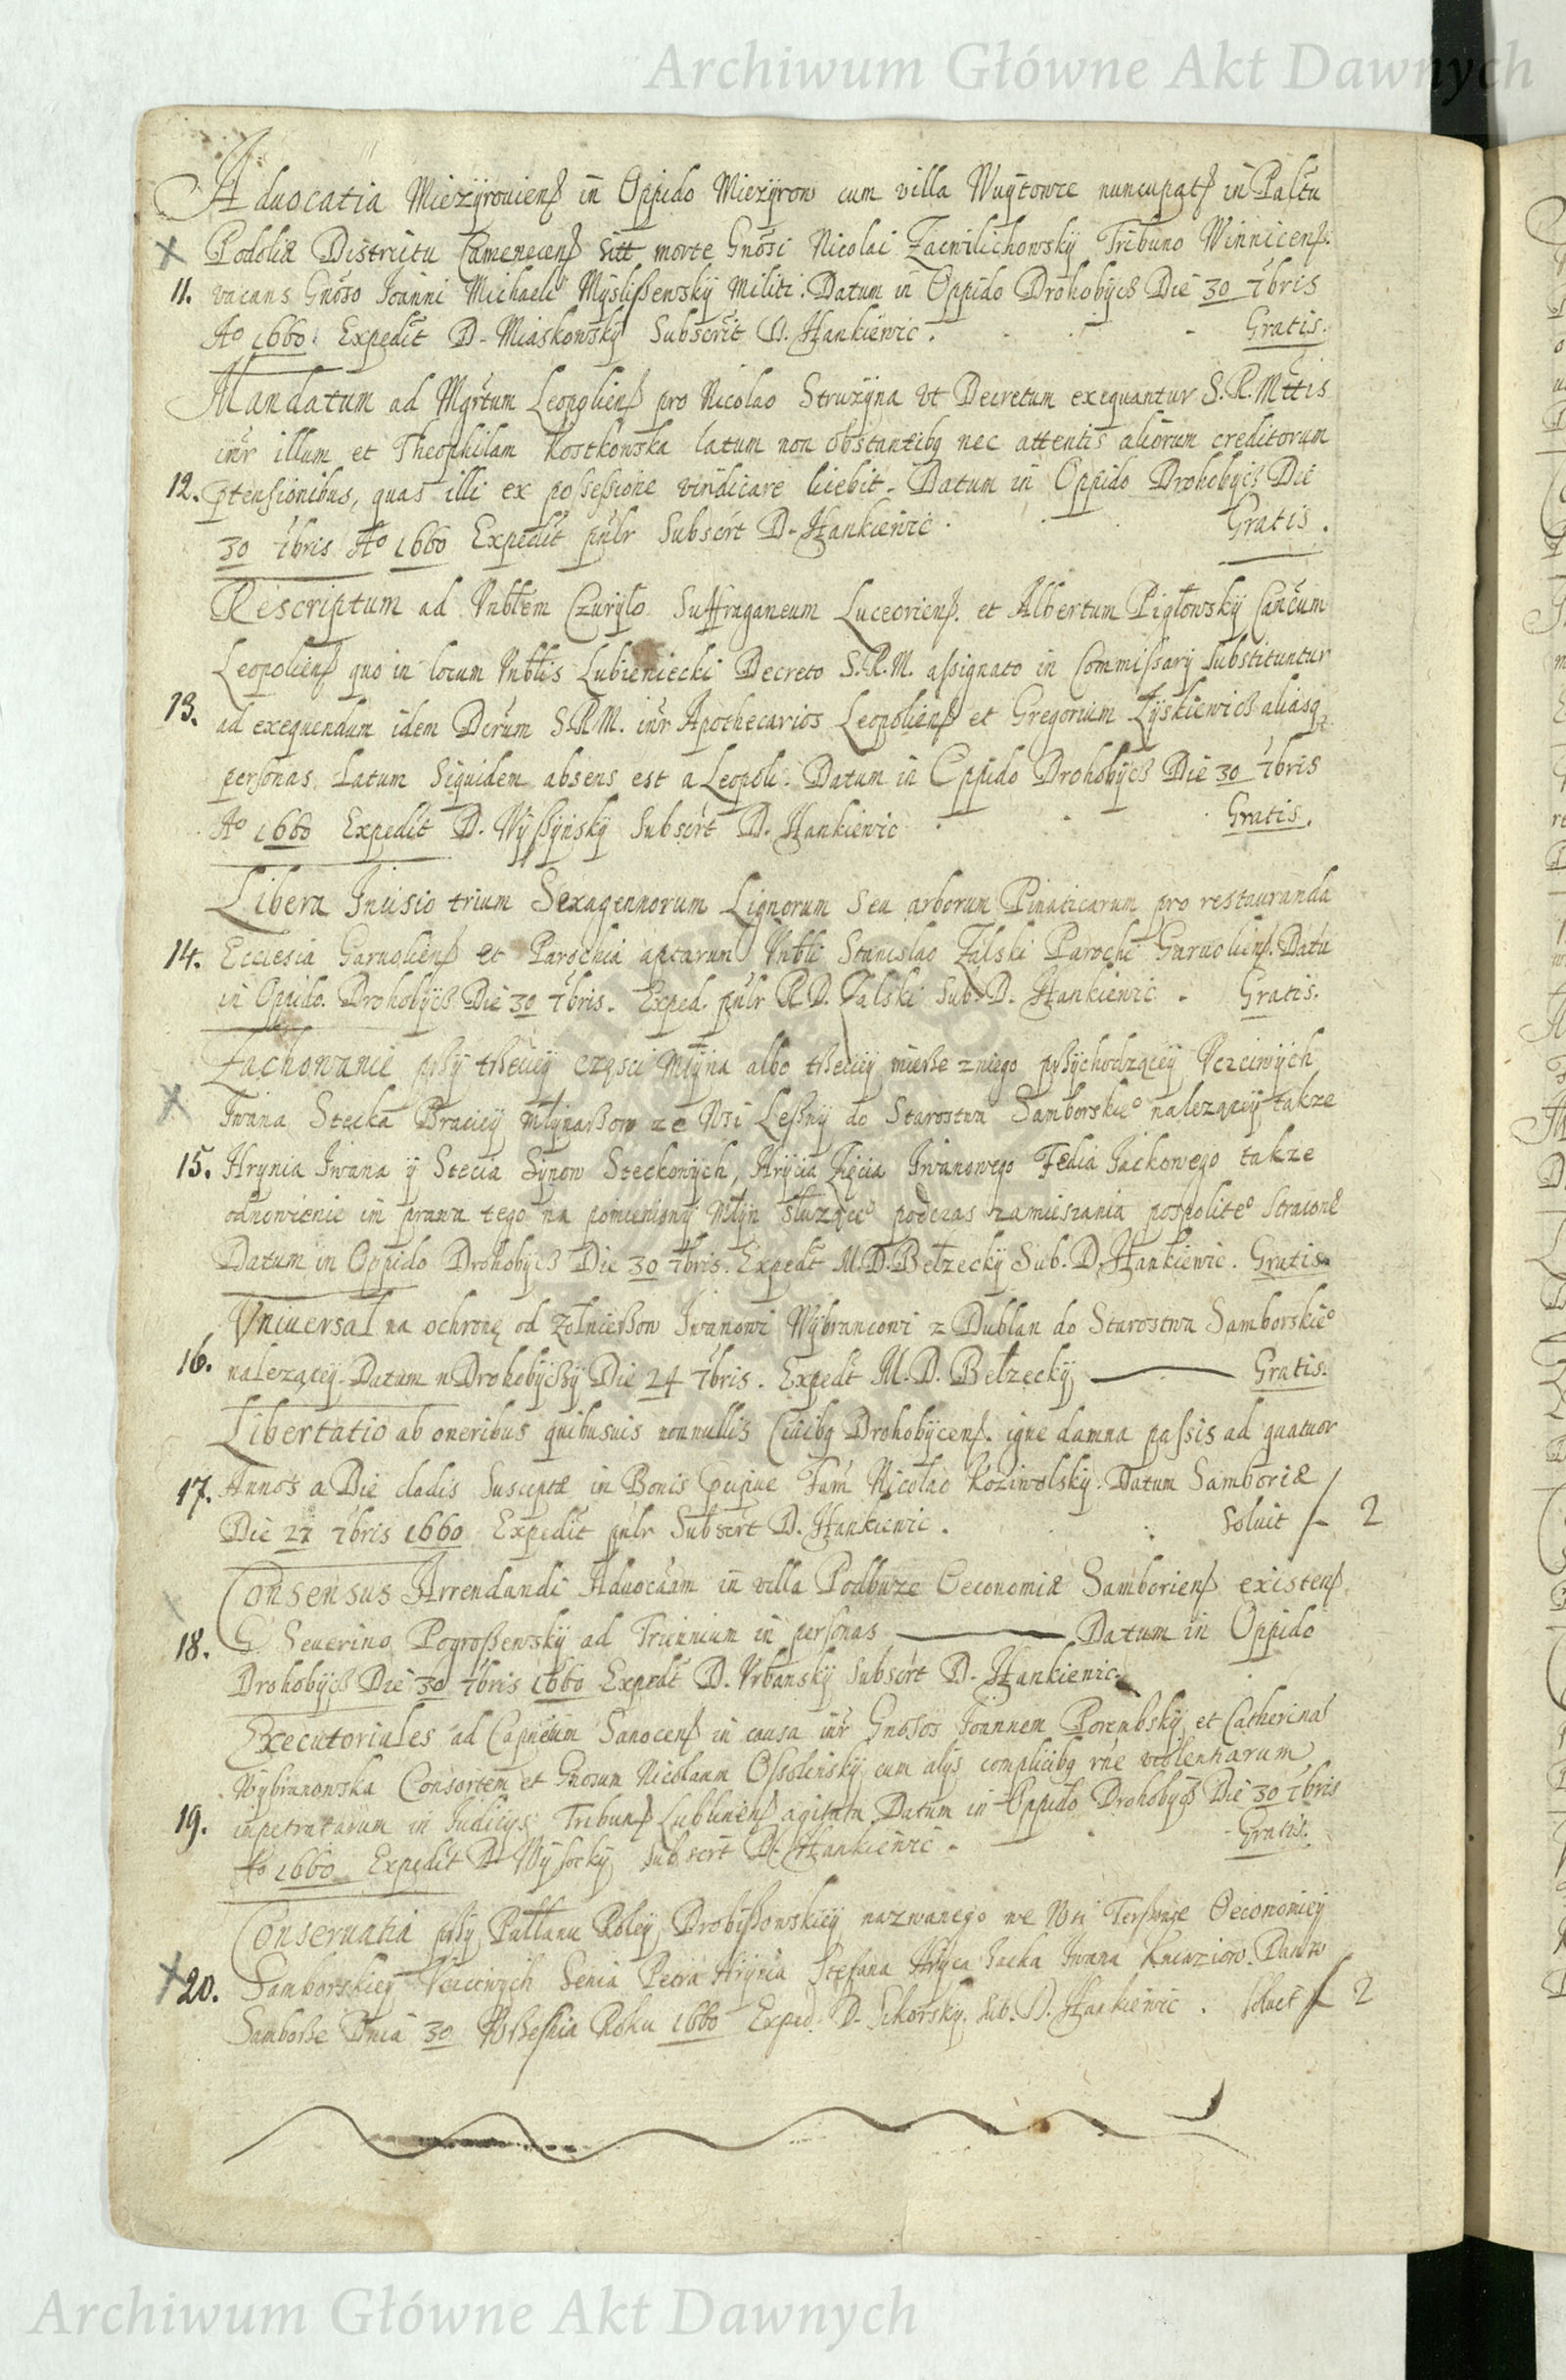 Archiwum Główne Akt Dawnych
Aduocatia Miezÿrouiens in Oppido Miezÿrow cum villa Wuÿtowce nuncupats in Paltu
Podoliæ Districtu Camenecens sitt morte Gnosi Nicolai Zacwilichowskÿ Tribuno Winnicens.
11. vacans Gnoso Joanni Michaeli Mÿslißewskÿ Militi. Datum in Oppido Drohobÿcß Die 30 7bris
Ao 1660. Expedit D. Miaskowskÿ Subscrit D. Hankiewic. Gratis.
Mandatum ad Mgrtum Leopoliens pro Nicolao Struzÿna vt Decretum exequantur S. R. Mttis
intr illum et Theophilam Kostkowska latum non obstantibq nec attentis aliorum creditorum
12. ptensionibus, quas illi ex possessione vindicare licebit. Datum in Oppido Drohobÿcß Die
30 7bris Ao 1660 Expedit pulr Subscrt D. Hankiewic. Gratis.
Rescriptum ad Vnbtem Czurÿło Suffraganeum Luceoriens. et Albertum Pigłowskÿ Cancum
Leopoliens quo in locum Vnbtis Lubieniecki Decreto S. R. M. assignato in Commissarÿ substituntur
13. ad exequendum idem Decrum S.R.M. intr Apothecarios Leopoliens et Gregorium Lÿskiewicß aliasq
personas Latum siquidem absens est a Leopoli. Datum in Oppido Drohobÿcß Die 30 7bris
Ao 1660 Expedit D. Wÿssÿnskÿ Subscrt D. Hankiewic Gratis.
Libera Incisio trium Sexagennorum Lignorum seu arborum Pinaticarum pro restauranda
14. Ecclesia Garuoliens et Parochia aptarum Vnbli Stanislao Zalski Parochi Garuoliens. Datu
in Oppido. Drohobÿcß Die 30 7bris. Exped. pulr R. D. Zalski Sub. D. Hankiewic. Gratis.
Zachowanie pßÿ tßeciej częsci Młÿna albo tßeciej mierße z niego pßÿchodzącej Vczciwÿch
Iwana Stecka Braciej Młÿnarßow ze Wsi Leßnÿ do Starostwa Samborskieo nalezącej takze
15. Hrynia Iwana ÿ Stecia Sÿnow Steckowÿch, Hrÿcia Zięcia Iwanowego Fedia Jackowego takze
odnowienie im prawa tego na pomienionÿ Młÿn słuząceo podczas zamieszania pospoliteo stracone
Datum in Oppido Drohobÿcß Die 30 7bris. Expedt M. D. Bełzeckÿ Sub. D. Hankiewic. Gratis.
Vniuersał na ochronę od żołnierßow Iwanowi Wÿbrancowi z Dublan do Starostwa Samborskieo
16. nalezącej. Datum w Drohobÿcßÿ Die 24 7bris. Expedt M. D. Bełzeckÿ Gratis.
Libertatio ab oneribus quibusuis nonnullis Ciuibq Drohobÿcens. igne damna passis ad quatuor
17. Annos a Die cladis susceptæ in Bonis pcipue Fam Nicolao Koziwolskÿ. Datum Samboriæ
Die 27 7bris 1660 Expedit pulr Subscrt D. Hankiewic. Soluit f 2
Consensus Arrendandi Aduocam in villa Podbuze Oeconomiæ Samboriens existens.
18. G. Seuerino Pogroßewskÿ ad Triennium in personas Datum in Oppido
Drohobÿcß Die 30 7bris 1660 Expedt D. Vrbanskÿ Subscrt D. Hankiewic.
Executoriales ad Capneum Sanocens in causa intr Gnosos Joannem Porembskÿ et Catherina
Wÿbranowska Consortem et Gnosum Nicolaum Ossolinskÿ cum alÿs complicibq rne violentiarum
19. inpetratarum in Judicÿs Tribuns Lublinens agitata Datum in Oppido Drohobÿcß Die 30 7bris
Ao 1660 Expedit D. Wÿsockÿ Subscrt D. Hankiewic. Gratis.
Conseruatia pßÿ Pułłanu Roleÿ Drobißowskieÿ nazwanego we Wsi Oeconomieÿ
20. Samborskieÿ Vczciwych Senia Petra Hrÿnia Stefana Hrÿca Jacka Iwana Kniaziow. Dan w
Samborße Dnia 30 Wrßesnia Roku 1660 Exped. D. Sikorskÿ. Sub. D. Hankiewic. Soluit f 2
Archiwum Główne Akt Dawnych